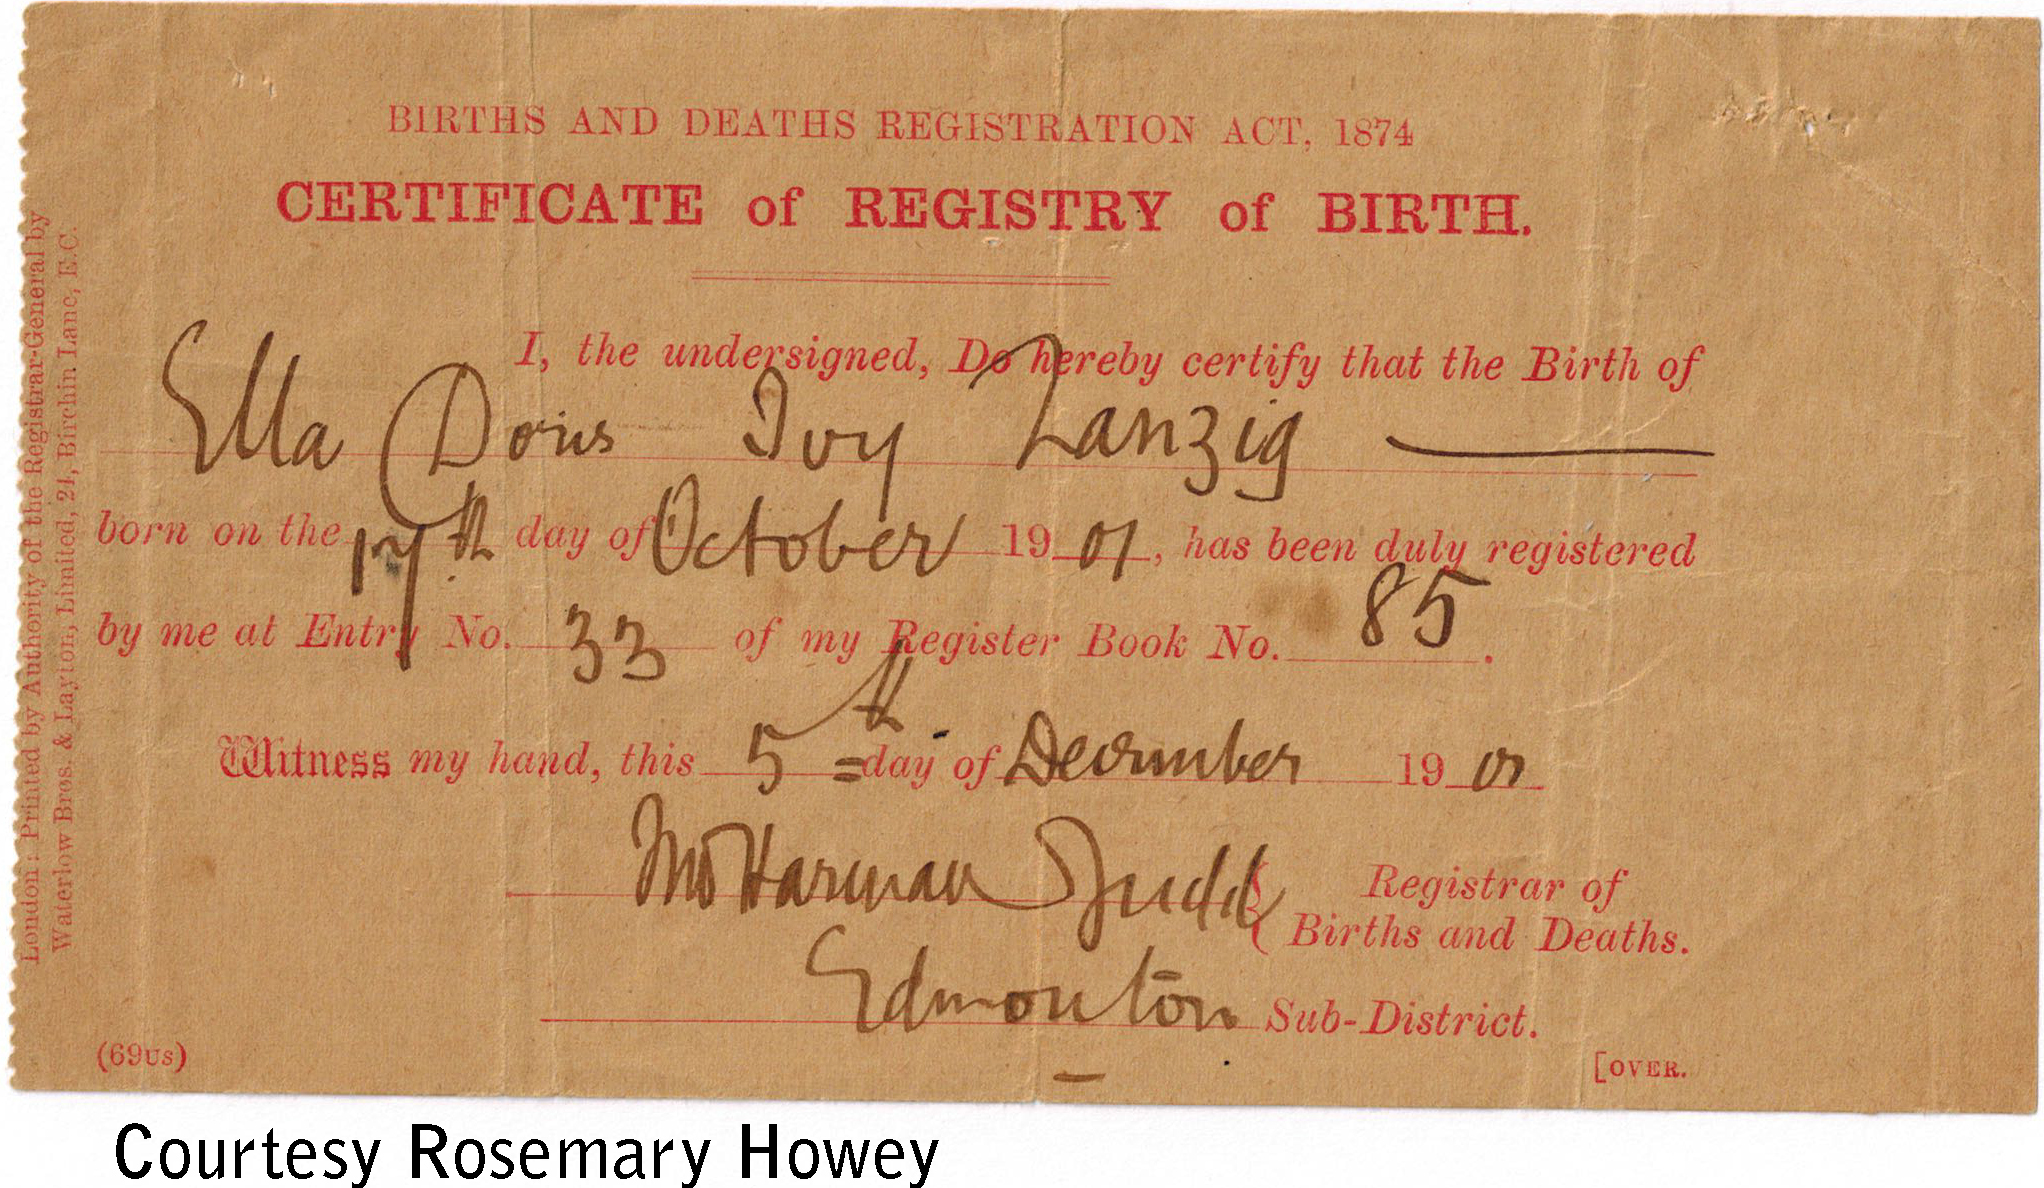 BIRTHS AND DEATHS REGISTRATION ACT, 1874
CERTIFICATE of REGISTRY of BIRTH.
I, the undersigned, Do hereby certify that the Birth of
Ella Doris Ivy Zanzig
born on the 17th day of October 1901, has been duly registered
by me at Entry No. 33 of my Register Book No. 85.
Witness my hand, this 5th day of December 1901
Harman Judd Registrar of
Births and Deaths.
Edmonton Sub-District.
(69us)
[OVER.
London: Printed by Authority of the Registrar-General by
Waterlow Bros. & Layton, Limited, 24, Birchin Lane, E.C.
Courtesy Rosemary Howey